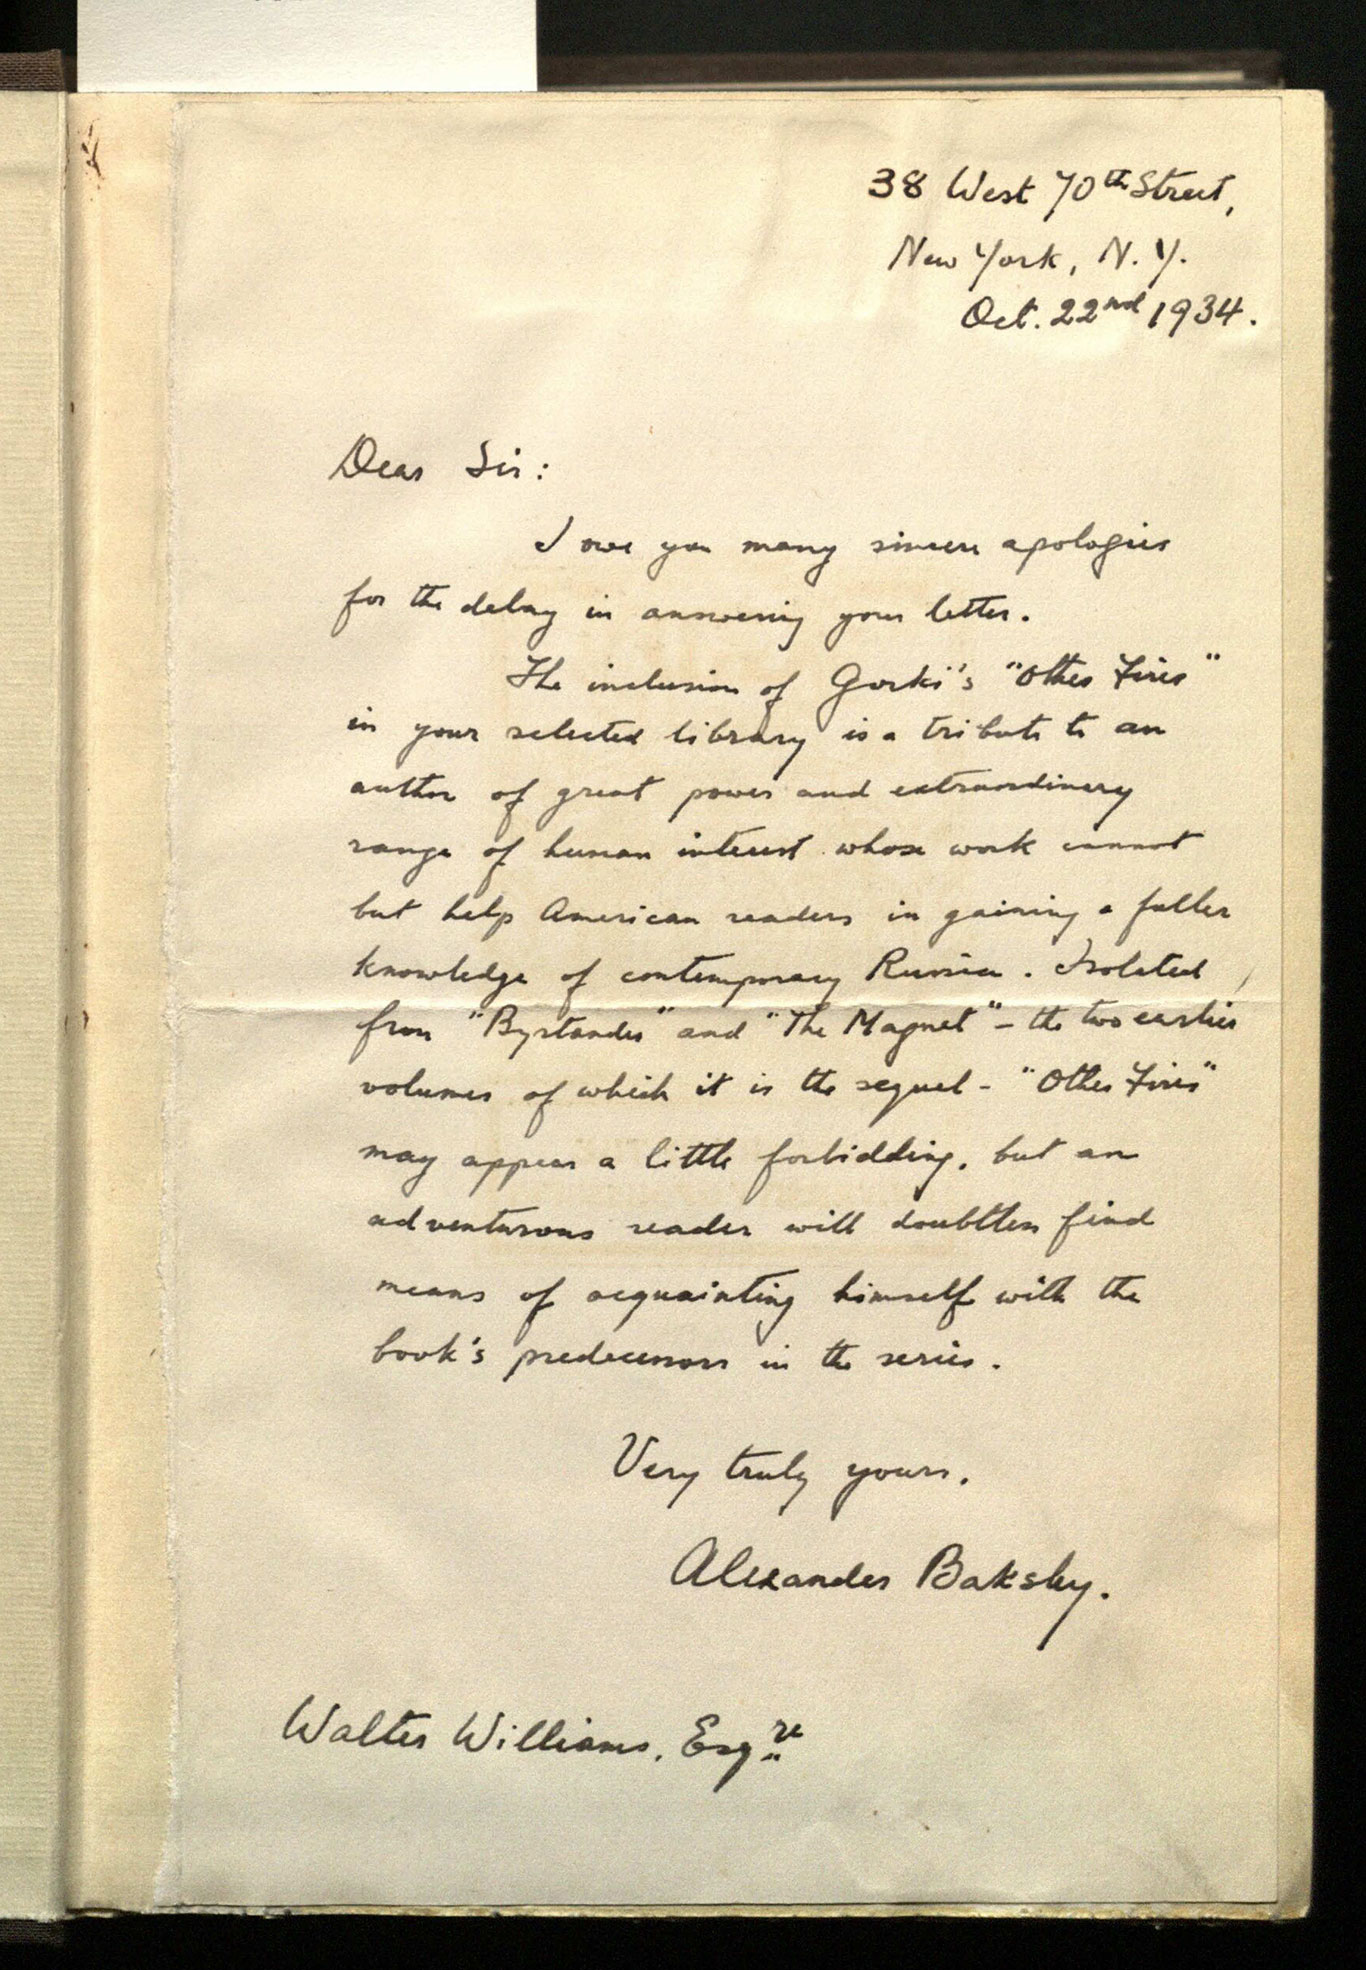 38 West 70th Street,
New York, N.Y.
Oct. 22nd 1934.
Dear Sir:
I owe you many sincere apologies
for the delay in answering your letter.
The inclusion of Gorki's "Other Fires"
in your selected library is a tribute to an
author of great power and extraordinary
range of human interest whose work cannot
but help American readers in gaining a fuller
knowledge of contemporary Russia. Isolated
from "Bystander" and "The Magnet" – the two earlier
volumes of which it is the sequel – "Other Fires"
may appear a little forbidding, but an
adventurous reader will doubtless find
means of acquainting himself with the
book's predecessors in the series.
Very truly yours,
Alexander Bakshy.
Walter Williams, Esqre